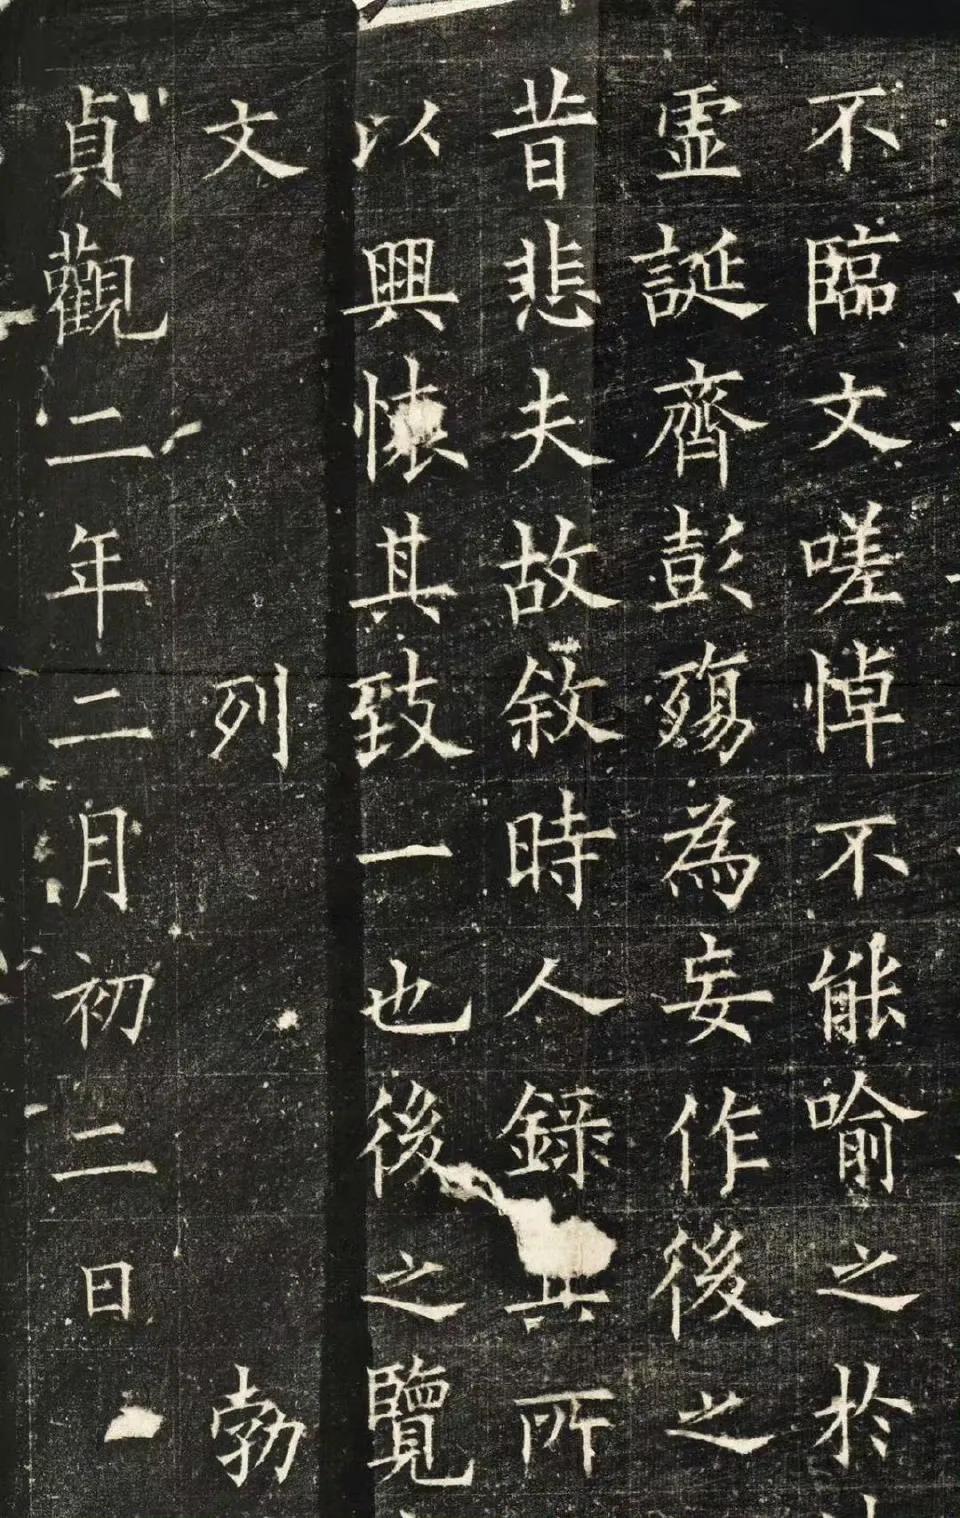 不臨文嗟悼不能喻之於
虛誕齊彭殤為妄作後之
昔悲夫故敘時人錄其所
以興懷其致一也後之覽
文 列 勃
貞觀二年二月初二日